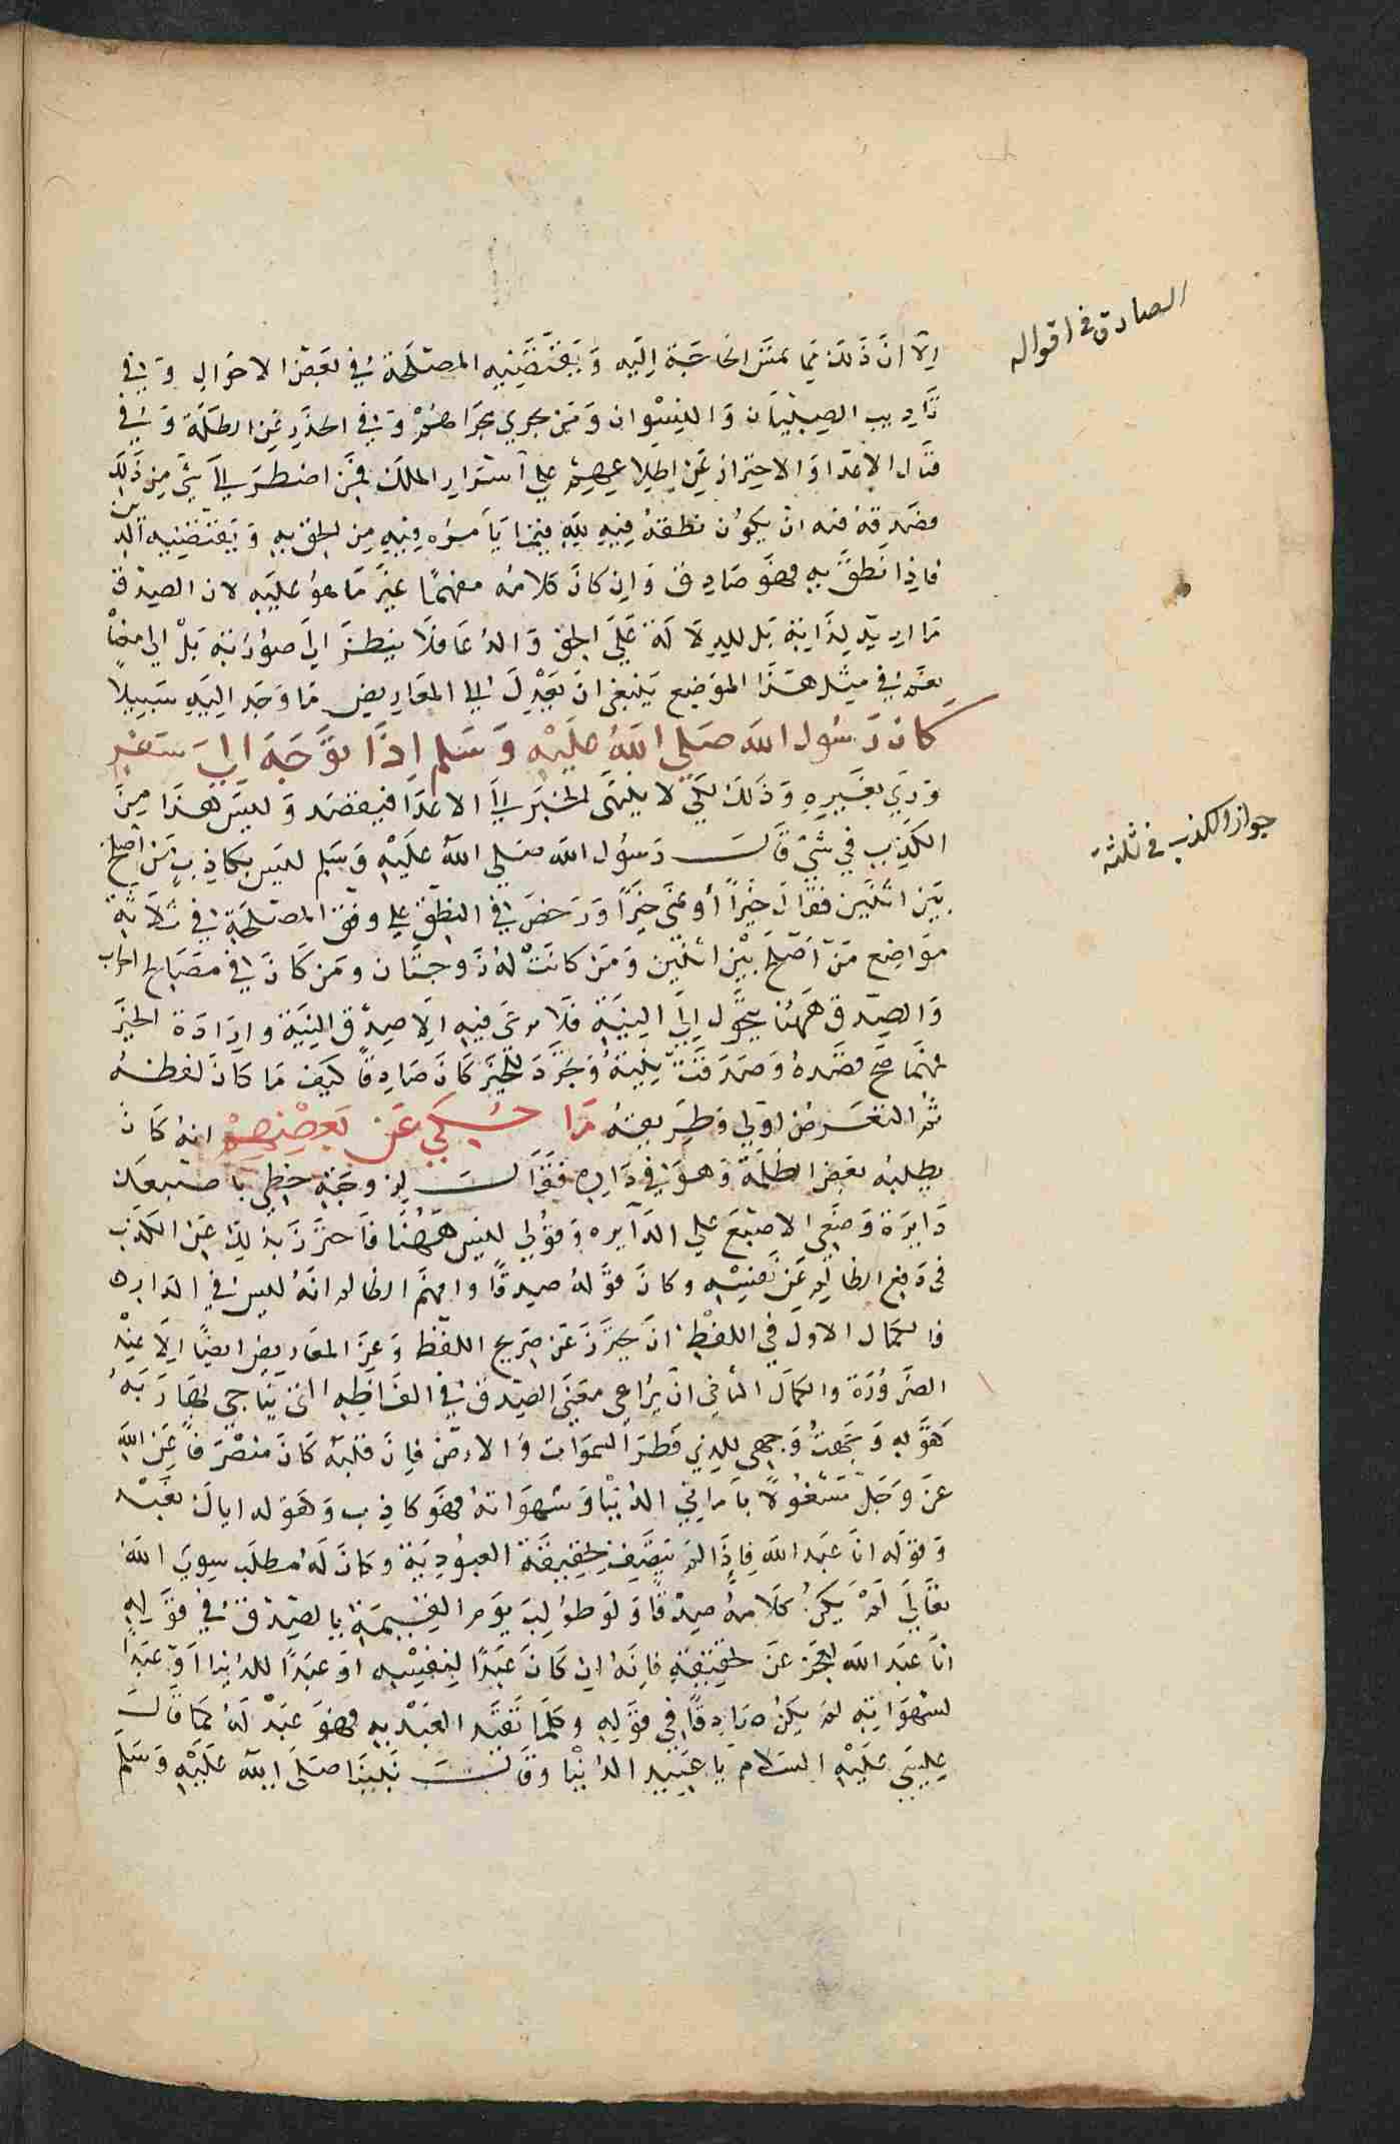 الصادق في اقواله
الا ان ذلك مما تمس الحاجة اليه وتقتضيه المصلحة في بعض الاحوال وفي
تاديب الصبيان والنسوان ومن يجري مجراهم وفي الحذر عن الظلمة وفي
قتال الاعدا والاحتراز عن اطلاعهم علي اسرار الملك فمن اضطر الي شي من ذلك
فصدقه فيه ان يكون نطقه فيه لله فيما يامره فيه من الحق به ويقتضيه الدين
فاذا نطق به فهو صادق وان كان كلامه مفهما غير ما هو عليه لان الصدق
ما اريد لذاته بل للدلالة على الحق والدعا فلا ينظر الي صورته بل الي معناه
نعم في مثل هذا الموضع ينبغي ان يعدل الي المعاريض ما وجد اليه سبيلا
كان رسول الله صلى الله عليه وسلم اذا توجه الي سفر
وري بغيره وذلك لكي لا ينتهى الخبر الي الاعدا فيقصد وليس هذا من
جواز الكذب في ثلثة
الكذب في شي قال رسول الله صلي الله عليه وسلم ليس بكاذب من اصلح
بين اثنين فقال خيرا أو نمى خيرا ورخص في النطق علي وفق المصلحة في ثلاثة
مواضع من اصلح بين اثنين ومن كانت له زوجتان ومن كان في مصالح الحرب
والصدق ههنا يتحول الي النية فلا يرعى فيه الا صدق النية وارادة الخير
فمهما صح قصده وصدقت نيته وتجرد للخير كان صادقا كيف ما كان لفظه
ثم التعريض اولي وطريقه ما حكي عن بعضهم انه كان
يطلبه بعض الظلمة وهو في داره فقال لزوجته خطي باصبعك
دايرة وضعي الاصبع علي الدايره وقولي ليس ههنا فاحترز بذلك عن الكذب
في دفع الظالم عن نفسه وكان قوله صدقا وافهم الظالم انه ليس في الداره
فالكمال الاول في اللفظ ان يحترز عن صريح اللفظ وعن المعاريض ايضا الا عند
الضرورة والكمال الثاني ان يراعي معنى الصدق في الفاظه التي يناجي بها ربه
كقوله وجهت وجهي للذي فطر السموات والارض فان قلبه كان منصرفا عن الله
عز وجل مشغولا باماني الدنيا وشهواته فهو كاذب وكقوله اياك نعبد
وقوله انا عبد الله فاذا لم يتصف بحقيقة العبودية وكان له مطلب سوى الله
تعالي لم يكن كلامه صدقا ولو طولب يوم القيمة بالصدق في قوله
انا عبد الله لعجز عن تحقيقه فانه ان كان عبدا لنفسه او عبدا للدنيا او عبدا
لشهواته لم يكن صادقا في قوله وكلما تقيد العبد به فهو عبد له كما قال
عيسى عليه السلام يا عبيد الدنيا وقال نبينا صلى الله عليه وسلم